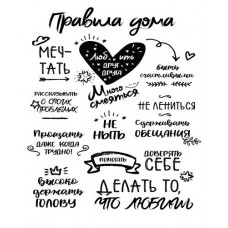 Правила дома
МЕЧ-
ТАТЬ
Люб ить
ДРУГ
ДРУГА
Быть
счастливыми
РАССКАЗЫВАТЬ
О СВОИХ
ПРОБЛЕМАХ
Много
смеяться
НЕ ЛЕНИТЬСЯ
Прощать
ДАЖЕ КОГДА
ТРУДНО!
НЕ
НЫТЬ
Сдерживать
ОБЕЩАНИЯ
ПОМОГАТЬ
ДОВЕРЯТЬ
СЕБЕ
Высоко
держать
ГОЛОВУ
ДЕЛАТЬ ТО,
ЧТО ЛЮБИШЬ